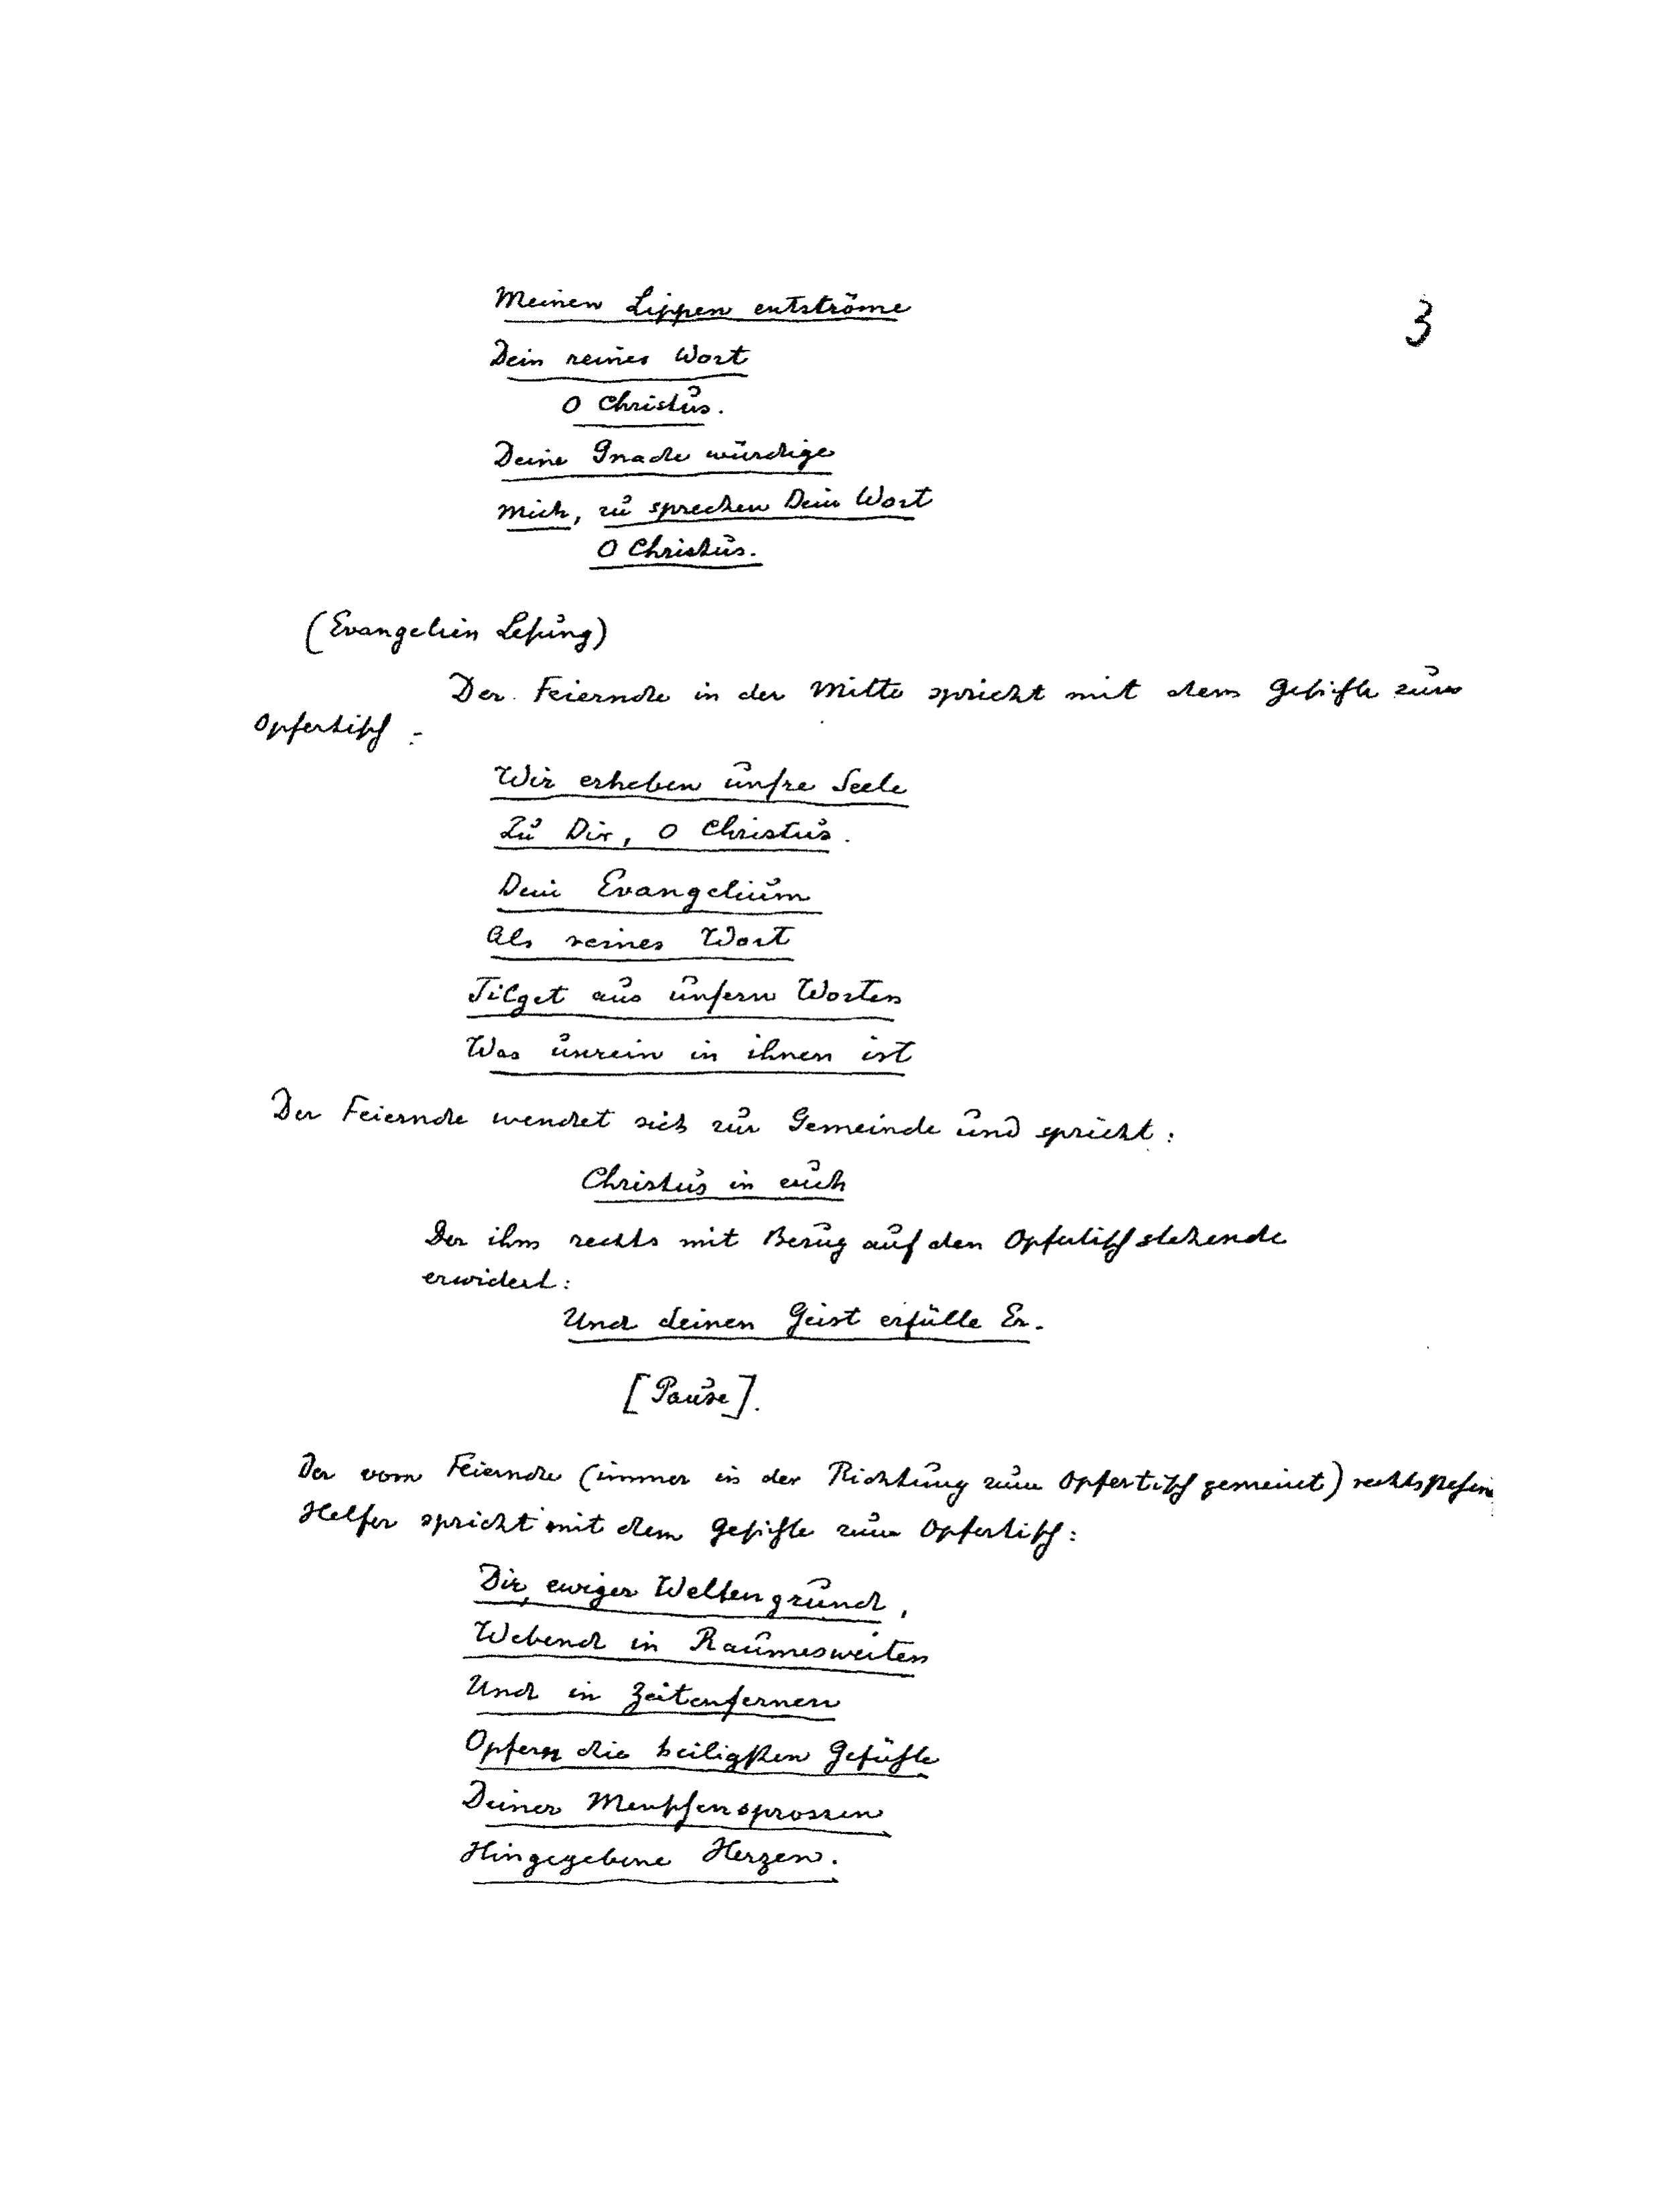 Meinen Lippen entströme
3
Dein reines Wort
O Christus.
Deine Gnade würdige
mich, zu sprechen Dein Wort
O Christus.
(Evangelien Lesung)
Der Feiernde in der Mitte spricht mit dem Gesichte zum
Opfertisch :
Wir erheben unsre Seele
Zu Dir, O Christus.
Dein Evangelium
Als reines Wort
Tilget aus unsern Worten
Was unrein in ihnen ist
Der Feiernde wendet sich zur Gemeinde und spricht:
Christus in euch
Der ihm rechts mit Bezug auf den Opfertisch stehende
erwidert:
Und deinen Geist erfülle Er.
[Pause].
Der vom Feiernde (immer in der Richtung zum Opfertisch gemeint) rechts
Helfer spricht mit dem Gesichte zum Opfertisch:
Dir, ewiger Weltengrund,
Webend in Raumesweiten
Und in Zeitenfernen
Opfern die heiligsten Gefühle
Deiner Menschensprossen
Hingegebene Herzen.